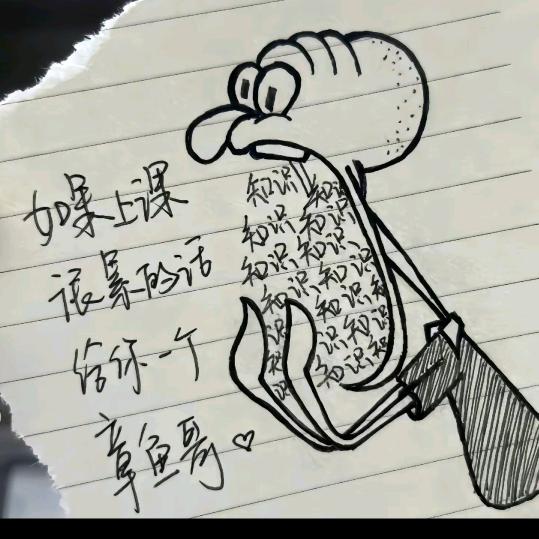 如果上课
很累的话
给你一个
章鱼哥♡
知识 知识
知识 知识
知识 知识
知识 知识
知识 知识
知识 知识